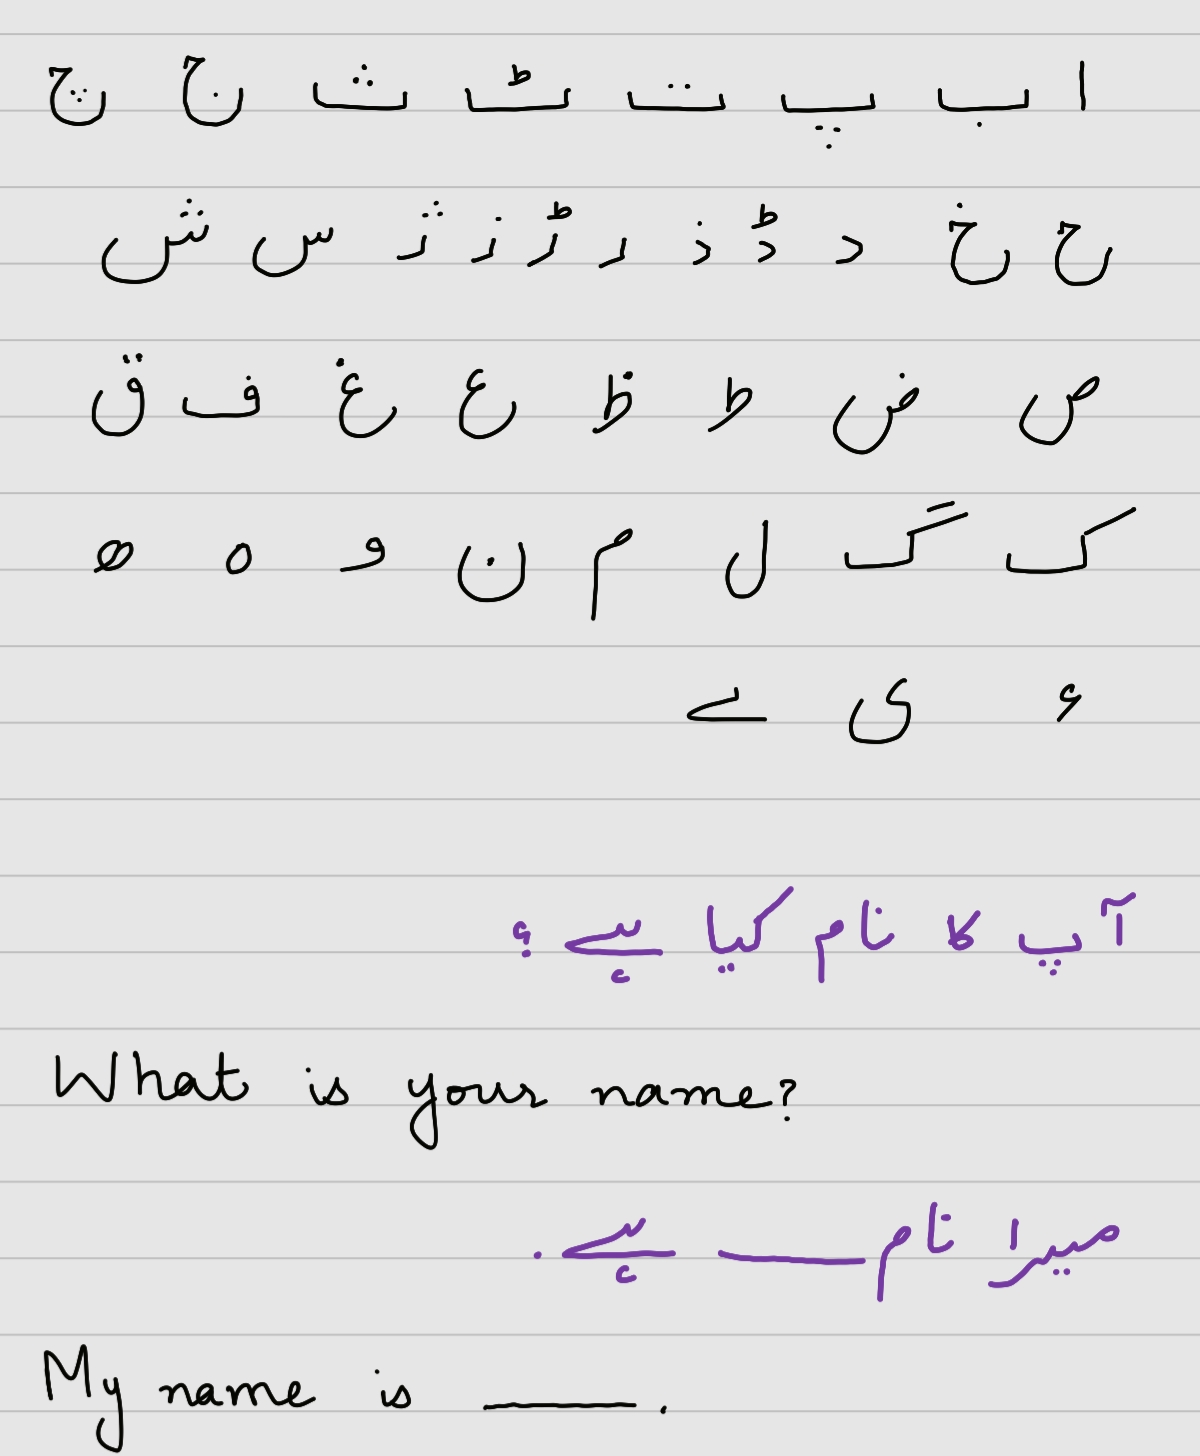 ا ب پ ت ٹ ث ج چ
ح خ د ڈ ذ ر ڑ ز ژ س ش
ص ض ط ظ ع غ ف ق
ک گ ل م ن و ہ ھ
ء ی ے
آپ کا نام کیا ہے؟
What is your name?
میرا نام ____ ہے.
My name is ____.